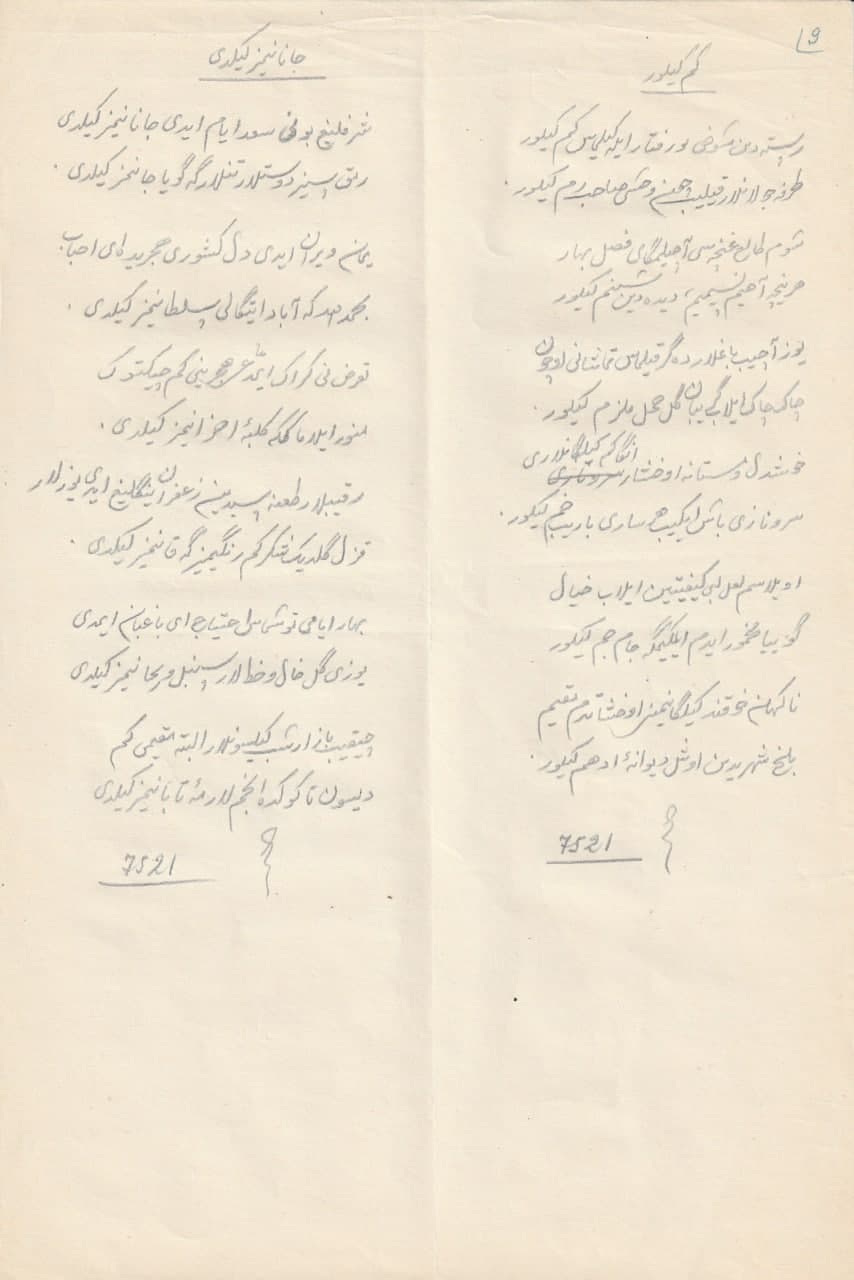 9
کم کیلور
رسته دین شوخی اور رفتار ایله کیلمس کم کیلور
طرفه جولانلار قیلیب چین وحشی صاحب رم کیلور.
شوم طالع غنچه سی آچیلمگای فصل بهار
هرنیچه آهیم نسیمیم، دیده دین شبنم کیلور
یوز آچیب باغلارده گر قیلماس تماشانی اوچون
چاک چاک ایلاب گریبان گل محمل ملزم کیلور.
خوشدل و مستانه اوخشار انگا کم کیلگانلاری
سرو نازی باش ایگیب هر ساری باریب خم کیلور.
اویلاسم لعل لبی کیفیتین ایلاب خیال
گوییا مخمور ایدم ایلگیمگه جام جم کیلور
ناگهان خوقند کیلگانیمنی اوخشاتدم مقیم
بلخ شهریدین اوشل دیوانهٔ ادهم کیلور.
7521
جانانیمز کیلدی
شرفلیغ بو نی سعد ایام ایدی جانانیمز کیلدی
رمق سیز دوستلار تنلارگه گویا جانیمز کیلدی.
یمان ویران ایدی دل کشوری هجریده ای احباب
بحمدالله که آباد ایتگالی سلطانیمز کیلدی.
تونی کراک ایمدی هجرینی کم چیکتوک
منور ایلاماکگه کلبهٔ احزانیمز کیلدی.
رقیبلار طعنه سیدین زعفران ینگلیغ ایدی یوزلار
قزل گلدیک شکر کم رنگیمیزگه قانیمز کیلدی.
بهار ایامی توشماس احتیاج ای باغبان ایمدی
یوزی گل خال و خطلار سنبل و ریحانیمز کیلدی
چیقیب بازار شب کیلسونلار البته مقیمی کم
دیسون تا کوکده انجملار مهٔ تابانیمز کیلدی
7521